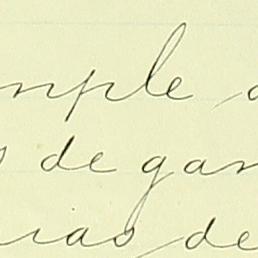 mple
de gan
ias de